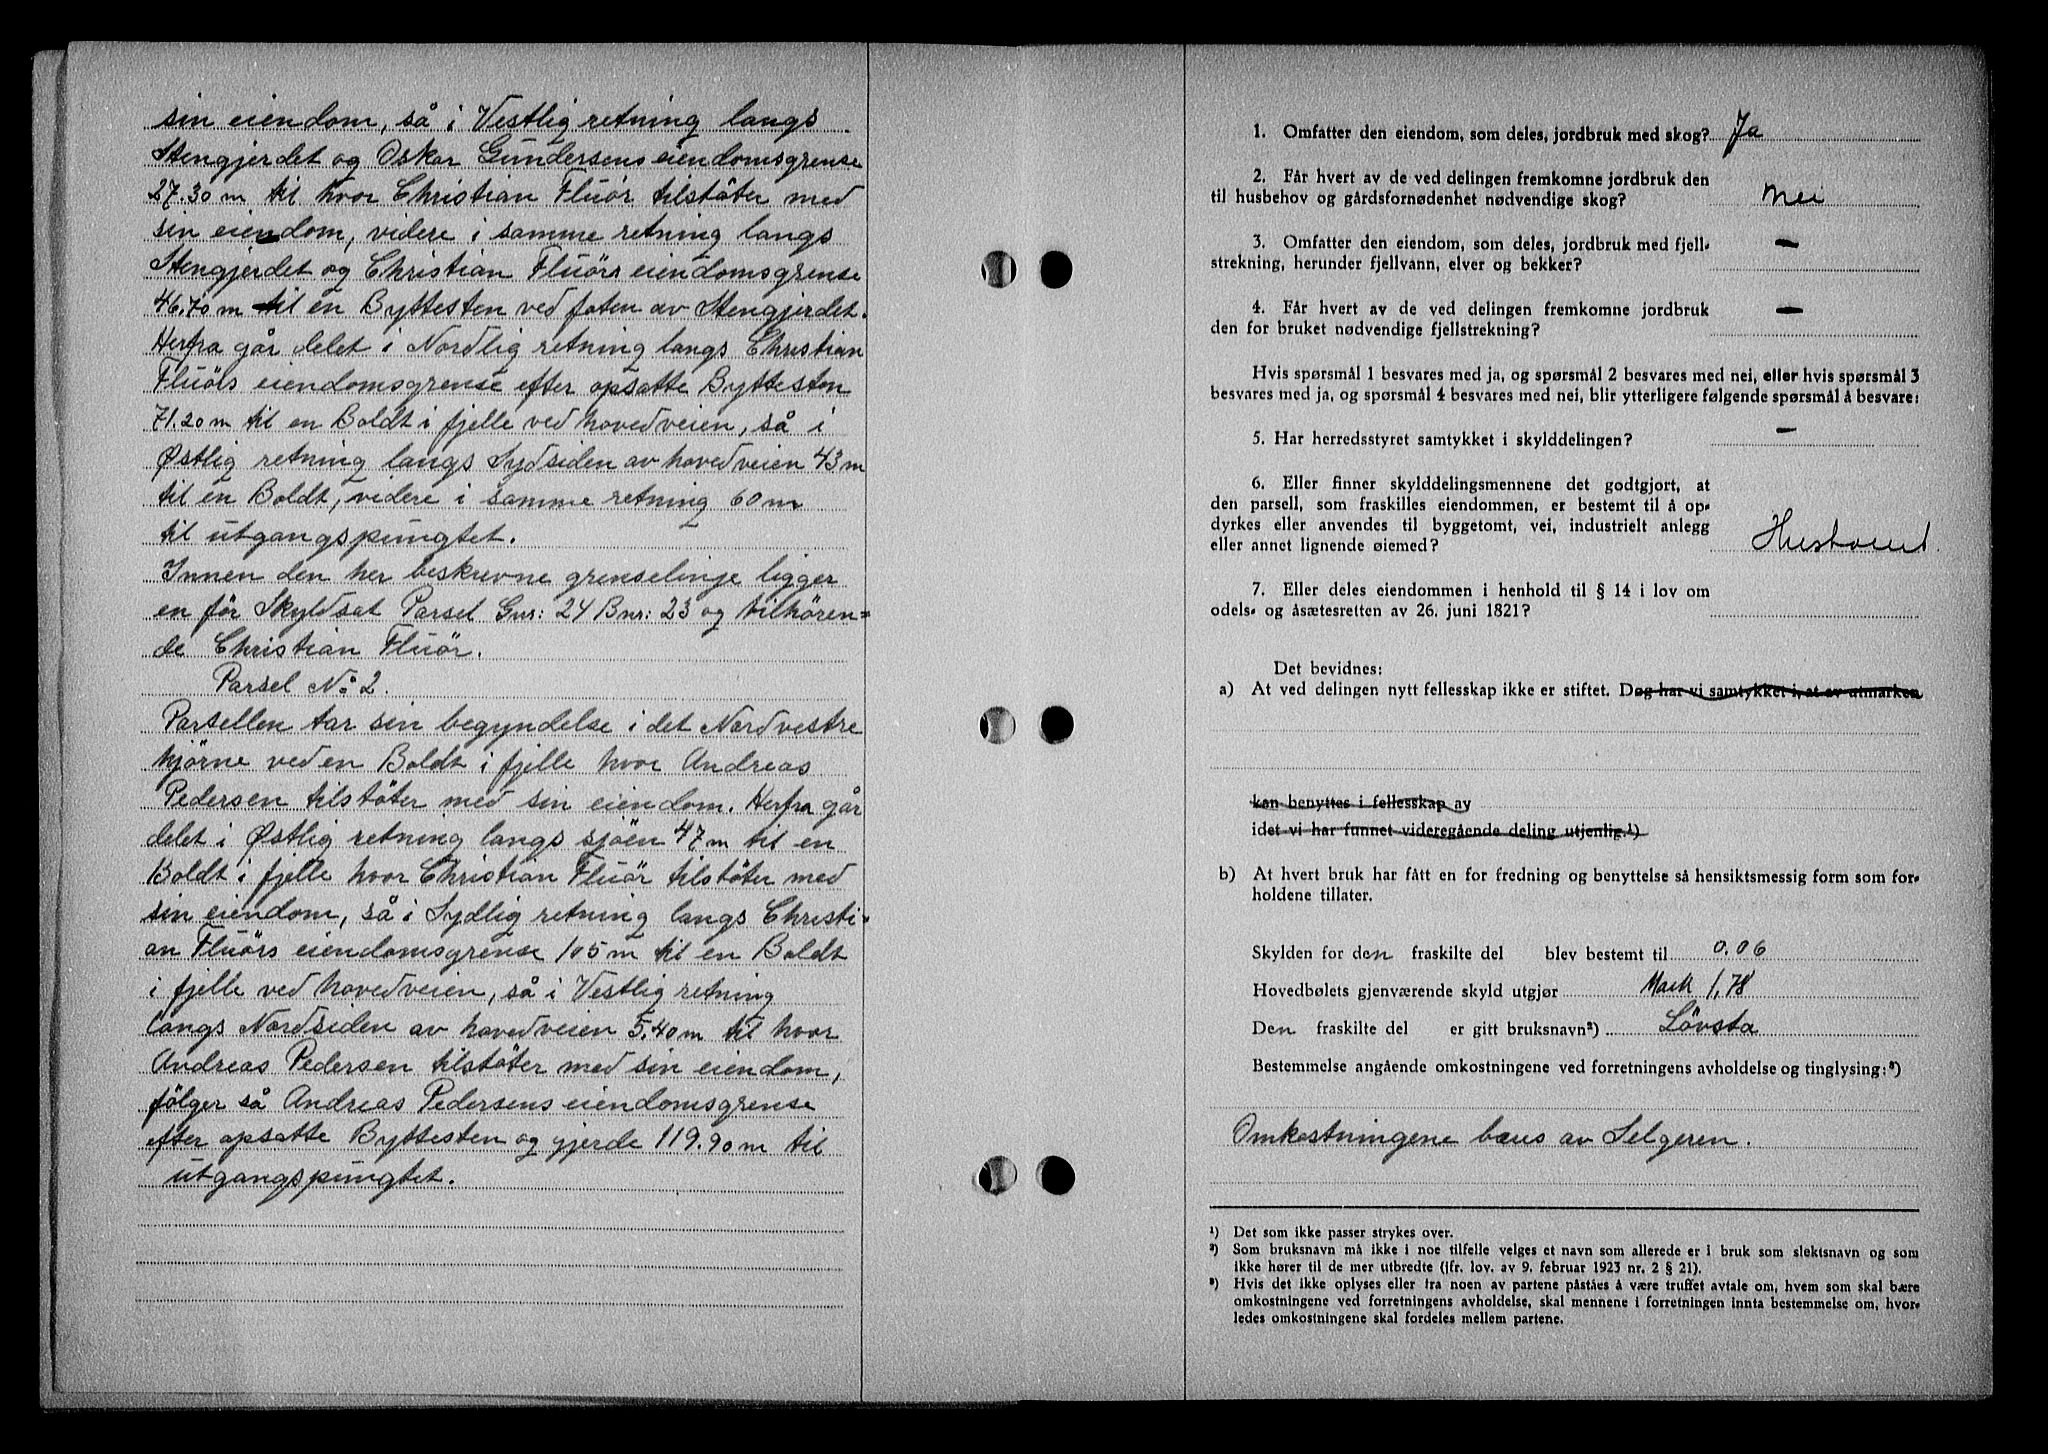 sin eiendom, så i Vestlig retning langs
Stengjerdet og Oskar Gundersens eiendomsgrense
27.30 m til hvor Christian Fluör tilstöter med
sin eiendom, videre i samme retning langs
Stengjerdet og Christian Fluörs eiendomsgrense
46.70 m til en Byttesten ved foten av Stengjerdet.
Herfra går delet i Nordlig retning langs Christian
Fluörs eiendomsgrense efter opsatte Byttesten
71.20 m til en Boldt i fjelle ved hovedveien, så i
Østlig retning langs Sydsiden av hovedveien 43 m
til en Boldt, videre i samme retning 60 m
til utgangspungtet.
Innen den her beskrevne grenselinje ligger
en för Skyldsat Parsel Gnr: 24 Bnr: 23 og tilhören=
de Christian Fluör.
Parsel No 2.
Parsellen tar sin begyndelse i det Nordvestre
hjörne ved en Boldt i fjelle hvor Andreas
Pedersen tilstöter med sin eiendom. Herfra går
delet i Østlig retning langs sjöen 47 m til en
Boldt i fjelle hvor Christian Fluör tilstöter med
sin eiendom, så i Sydlig retning langs Christi=
an Fluörs eiendomsgrense 105 m til en Boldt
i fjelle ved hovedveien, så i Vestlig retning
langs Nordsiden av hovedveien 5.40 m til hvor
Andreas Pedersen tilstöter med sin eiendom,
fölger så Andreas Pedersens eiendomsgrense
efter opsatte Byttesten og gjerde 119.90 m til
utgangspungtet.
1. Omfatter den eiendom, som deles, jordbruk med skog? Ja
2. Får hvert av de ved delingen fremkomne jordbruk den
til husbehov og gårdsfornødenhet nødvendige skog? Nei
3. Omfatter den eiendom, som deles, jordbruk med fjell-
strekning, herunder fjellvann, elver og bekker? —
4. Får hvert av de ved delingen fremkomne jordbruk
den for bruket nødvendige fjellstrekning? —
Hvis spørsmål 1 besvares med ja, og spørsmål 2 besvares med nei, eller hvis spørsmål 3
besvares med ja, og spørsmål 4 besvares med nei, blir ytterligere følgende spørsmål å besvare:
5. Har herredsstyret samtykket i skylddelingen? —
6. Eller finner skylddelingsmennene det godtgjort, at
den parsell, som fraskilles eiendommen, er bestemt til å op-
dyrkes eller anvendes til byggetomt, vei, industrielt anlegg
eller annet lignende øiemed? Hustomt.
7. Eller deles eiendommen i henhold til § 14 i lov om
odels- og åsætesretten av 26. juni 1821?
Det bevidnes:
a) At ved delingen nytt fellesskap ikke er stiftet. Dog har vi samtykket i, at av utmarken
kan benyttes i fellesskap av
idet vi har funnet videregående deling utjenlig.¹)
b) At hvert bruk har fått en for fredning og benyttelse så hensiktsmessig form som for-
holdene tillater.
Skylden for den fraskilte del blev bestemt til 0.06
Hovedbølets gjenværende skyld utgjør Mark 1,78
Den fraskilte del er gitt bruksnavn²) Lövsta
Bestemmelse angående omkostningene ved forretningens avholdelse og tinglysing:³)
Omkostningene bæres av Selgeren.
¹) Det som ikke passer strykes over.
²) Som bruksnavn må ikke i noe tilfelle velges et navn som allerede er i bruk som slektsnavn og som
ikke hører til de mer utbredte (jfr. lov. av 9. februar 1923 nr. 2 § 21).
³) Hvis det ikke oplyses eller fra noen av partene påståes å være truffet avtale om, hvem som skal bære
omkostningene ved forretningens avholdelse, skal mennene i forretningen innta bestemmelse om, hvor-
ledes omkostningene skal fordeles mellem partene.